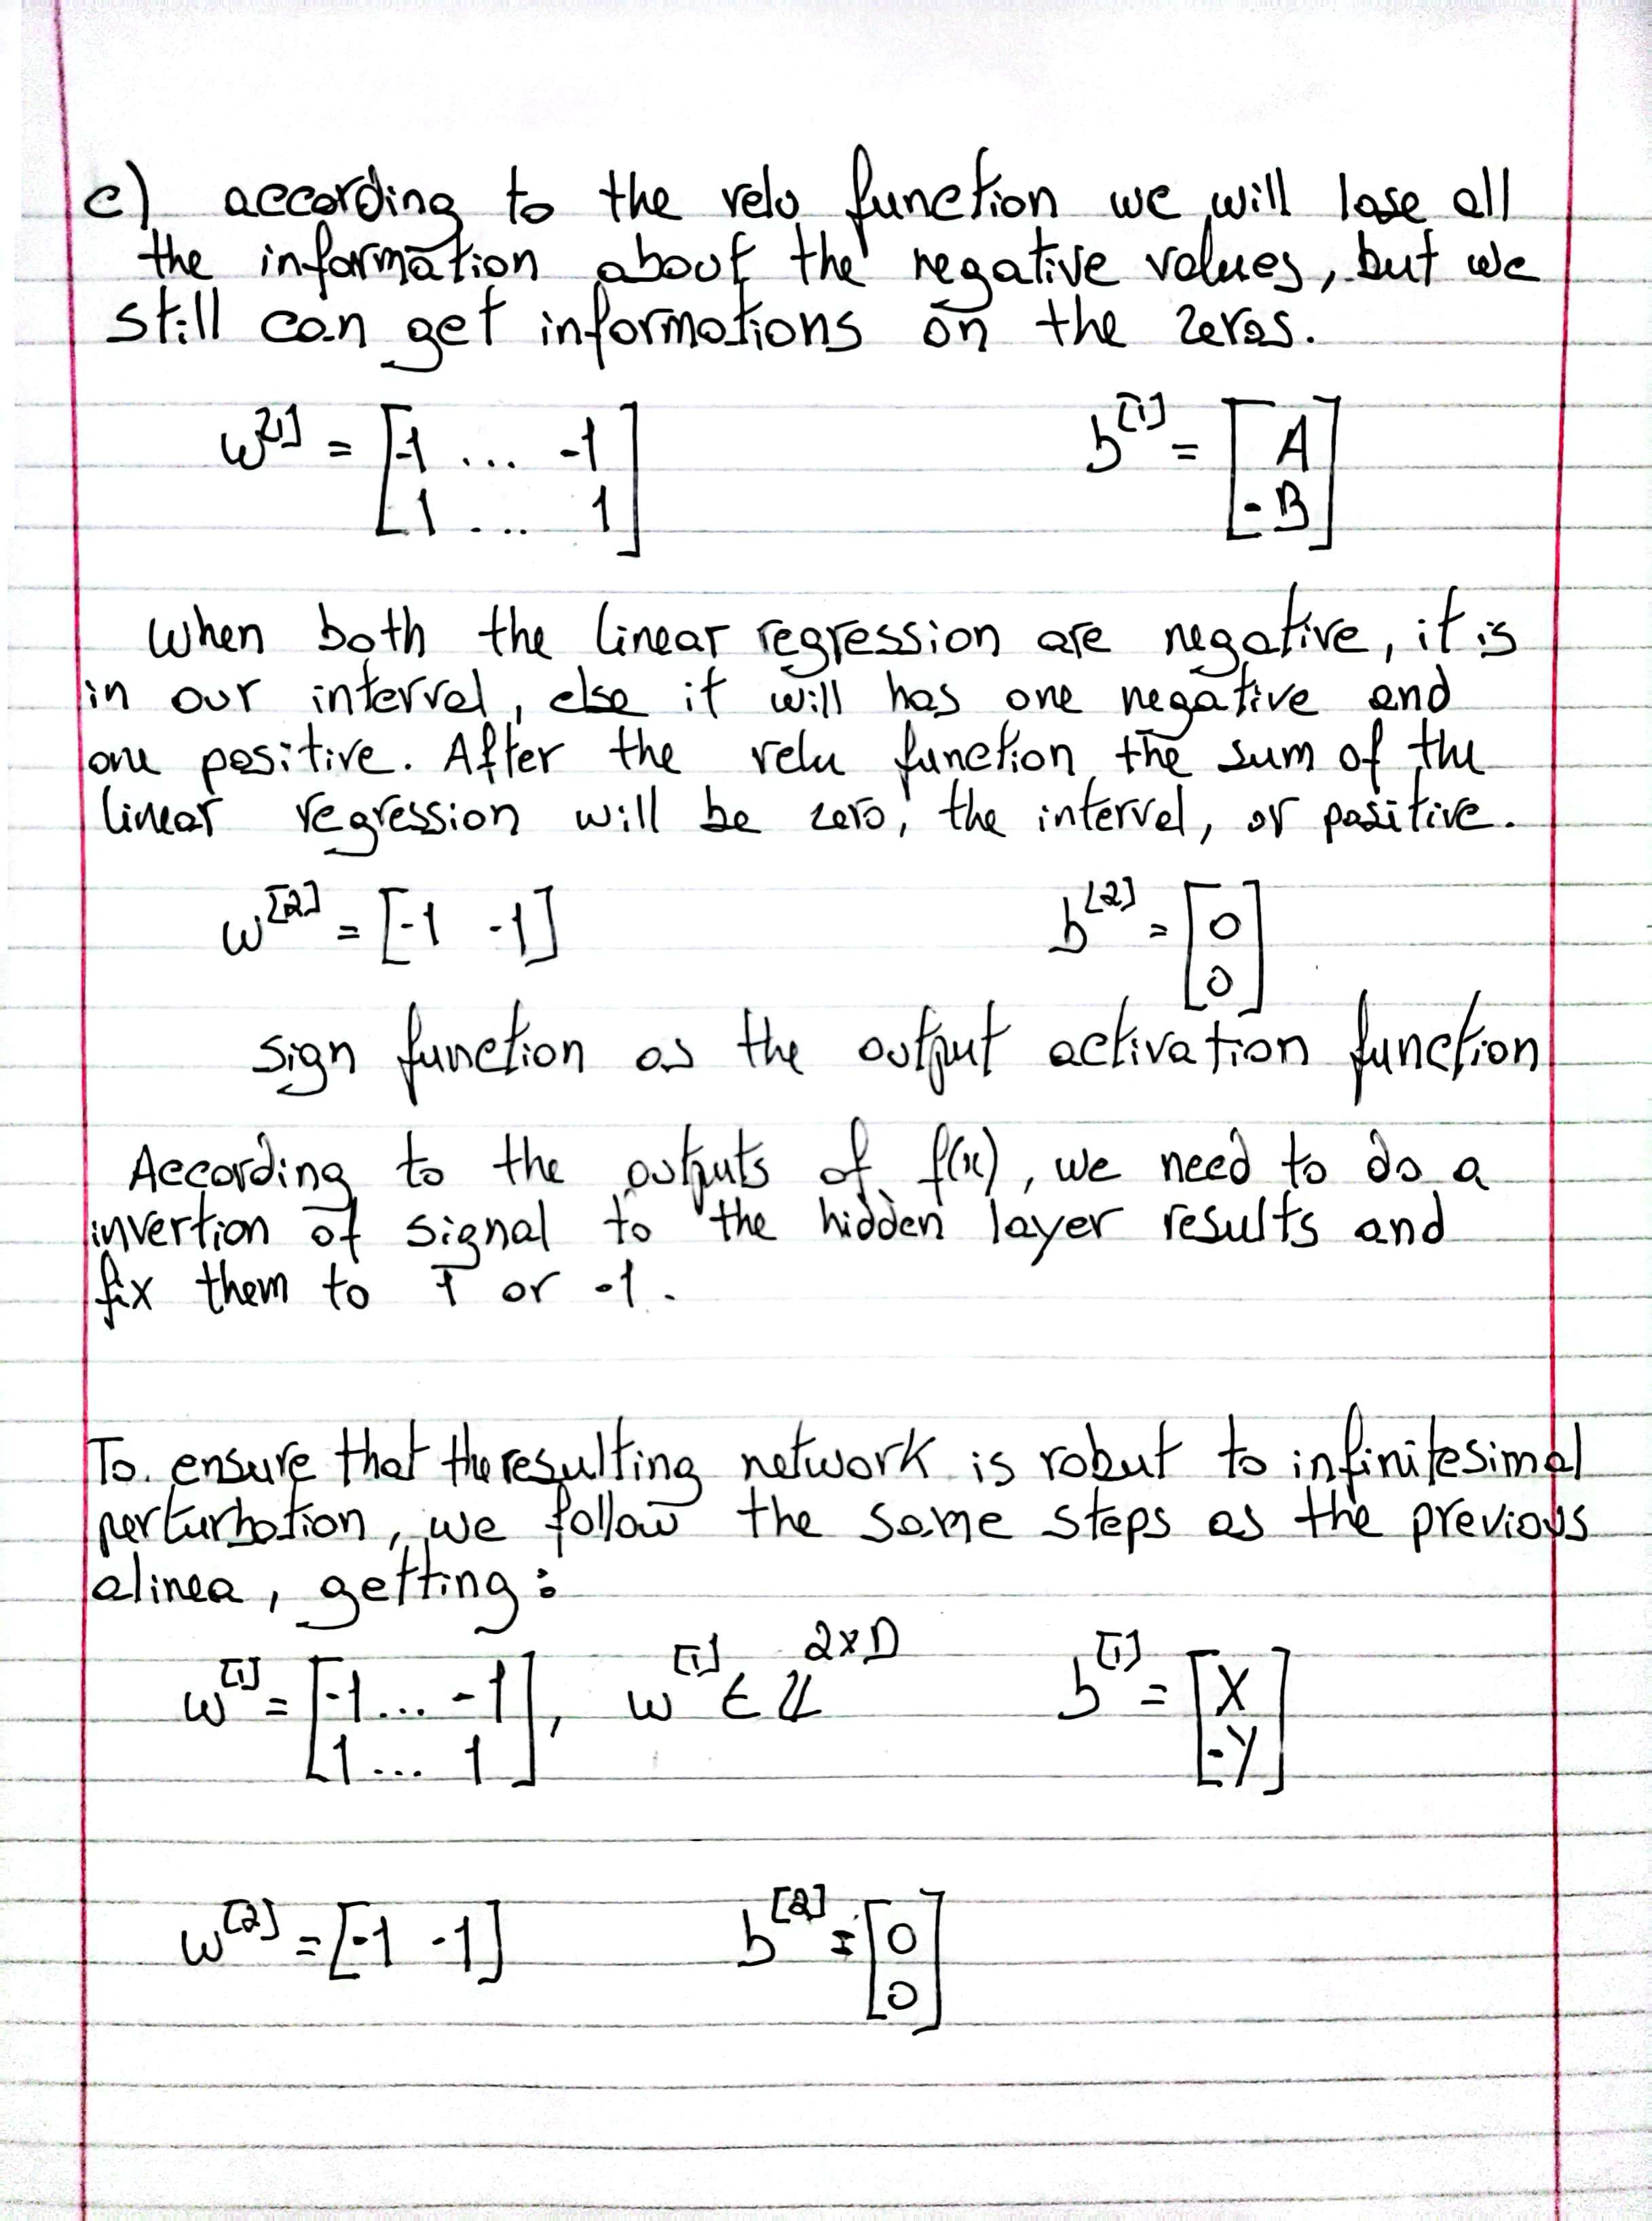 c) according to the relu function we will lose all
the information about the negative values, but we
still can get informations on the zeros.
W[1] = [-1 ... -1    b[1] = [A
1 ... 1]    -B]
When both the linear regression are negative, it is
in our interval, else it will has one negative and
one positive. After the relu function, the sum of the
linear regression will be zero, the interval, or positive.
W[2] = [-1 -1]    b[2] = [0
0]
sign function as the output activation function
According to the outputs of f(x), we need to do a
invertion of signal to the hidden layer results and
fix them to 1 or -1.
To ensure that the resulting network is robut to infinitesimal
perturbation, we follow the same steps as the previous
alinea, getting:
W[1] = [-1 ... -1    , W[1] ∈ ℤ 2×D    b[1] = [X
1 ... 1]    -Y]
W[2] = [-1 -1]    b[2] = [0
0]